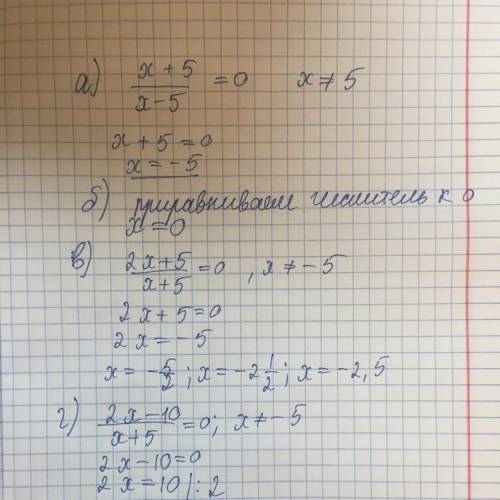 а) x + 5 / x - 5 = 0 x ≠ 5
x + 5 = 0
x = - 5
б) приравниваем числитель к 0
x = 0
в) 2x + 5 / x + 5 = 0 , x ≠ - 5
2x + 5 = 0
2x = - 5
x = - 5/2 ; x = - 2 1/2 ; x = - 2,5
г) 2x - 10 / x + 5 = 0; x ≠ - 5
2x - 10 = 0
2x = 10 | : 2